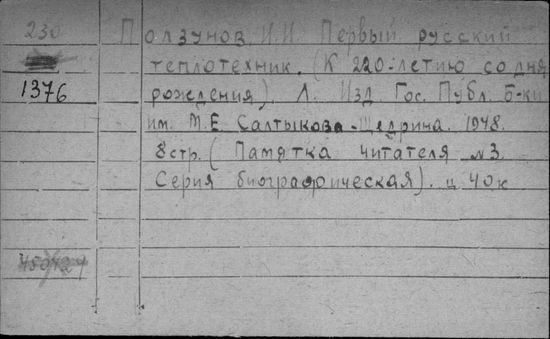 230
Ползунов, И.И. Первый русский
теплотехник. (К 220-летию со дня
1376
рождения). Л. Изд. Гос. Публ. Б-ки
им. М.Е. Салтыкова-Щедрина. 1948.
8стр. (Памятка читателя №3.
Серия биографическая). ц. 40к